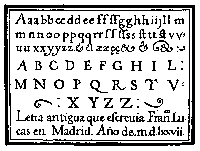 Aaabbccddeeffſſgghhiijllm
mnnooppqqrrſſſsstttuvv
uuxxyyzz
A B C D E F G H I L:
M N O P Q R S T V:
: X Y Z Z :
Letra antigua que escreuia Franco Lu
cas en Madrid. Año de. m.d.lxxvii.